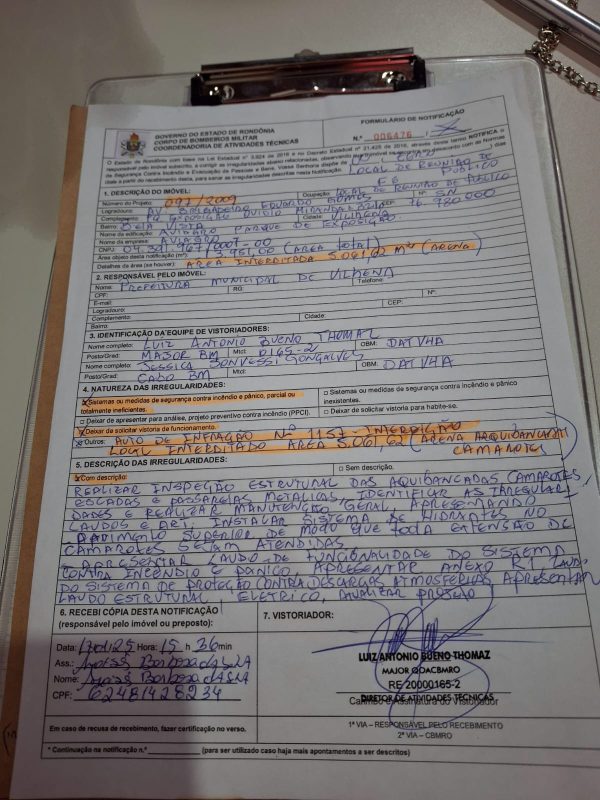 GOVERNO DO ESTADO DE RONDÔNIA
CORPO DE BOMBEIROS MILITAR
COORDENADORIA DE ATIVIDADES TÉCNICAS
FORMULÁRIO DE NOTIFICAÇÃO
N.º 006476 /
O Estado de Rondônia com base na Lei Estadual nº 3.924 de 2016 e no Decreto Estadual nº 21.425 de 2016, através deste termo NOTIFICA o
1. DESCRIÇÃO DO IMÓVEL:
Número do Projeto: 097/2009 Ocupação: LOCAL DE REUNIÃO DE PÚBLICO
Logradouro: AV. BRIGADEIRO EDUARDO GOMES Nº: SN
Complemento: PQ EXPOSIÇÃO OVIDIO MIRANDA 76.980000
Bairro: BELA VISTA Cidade: VILHENA
Nome da edificação: AVIAGRO PARQUE DE EXPOSIÇÃO.
Nome da empresa: AVIAGRO
CNPJ:
Área objeto desta notificação (m²): (ÁREA TOTAL)
Detalhes da área (se houver): ÁREA INTERDITADA 5.061,62 m² (ARENA)
2. RESPONSÁVEL PELO IMÓVEL:
Nome: PREFEITURA MUNICIPAL DE VILHENA Telefone:
CPF: RG:
E-mail:
Logradouro: Nº:
Complemento: CEP:
Bairro: Cidade:
3. IDENTIFICAÇÃO DA EQUIPE DE VISTORIADORES:
Nome completo: LUIZ ANTONIO BUENO THOMAZ
Posto/Grad: MAJOR BM Mtcl: 0165-2 OBM: DATVHA
Nome completo: JESSICA GONÇALVES
Posto/Grad: CABO BM Mtcl: OBM: DATVHA
4. NATUREZA DAS IRREGULARIDADES:
Sistemas ou medidas de segurança contra incêndio e pânico, parcial ou totalmente ineficientes.
□ Sistemas ou medidas de segurança contra incêndio e pânico inexistentes.
□ Deixar de apresentar para análise, projeto preventivo contra incêndio (PPCI).
□ Deixar de solicitar vistoria para habite-se.
Deixar de solicitar vistoria de funcionamento.
Outros: AUTO DE INFRAÇÃO Nº 1157 - INTERDIÇÃO
LOCAL INTERDITADO ÁREA 5.061,62 (ARENA ARQUIBANCADAS
CAMAROTE)
5. DESCRIÇÃO DAS IRREGULARIDADES:
Com descrição: □ Sem descrição.
REALIZAR INSPEÇÃO ESTRUTURAL DAS AQUIBANCADAS CAMAROTES,
ESCADAS E PASSARELAS METALICAS, IDENTIFICAR AS IRREGULARI
DADES E REALIZAR MANUTENÇÃO GERAL APRESENTANDO
LAUDOS E ART. INSTALAR SISTEMA DE HIDRANTES NO
PAVIMENTO SUPERIOR DE MODO QUE TODA EXTENSÃO DE
CAMAROTES SEJAM ATENDIDAS
APRESENTAR LAUDO DE FUNCIONALIDADE DO SISTEMA
CONTRA INCENDIO E PANICO, APRESENTAR ANEXO R1, LAUDO
DO SISTEMA DE PROTEÇÃO CONTRA DESCARGAS ATMOSFERICAS, APRESENTAR
LAUDO ESTRUTURAL, ELETRICO, PROJETO
6. RECEBI CÓPIA DESTA NOTIFICAÇÃO
(responsável pelo imóvel ou preposto):
Data: Hora: 15 h 36 min
Ass.:
Nome: Barbosa da Silva
CPF: 62481428234
Em caso de recusa de recebimento, fazer certificação no verso.
7. VISTORIADOR:
LUIZ ANTONIO BUENO THOMAZ
MAJOR QOACBMRO
RE 20000165-2
DIRETOR DE ATIVIDADES TÉCNICAS
Carimbo e Assinatura do Vistoriador
1ª VIA – RESPONSÁVEL PELO RECEBIMENTO
2ª VIA – CBMRO
* Continuação na notificação n.º (para ser utilizado caso haja mais apontamentos a ser descritos)